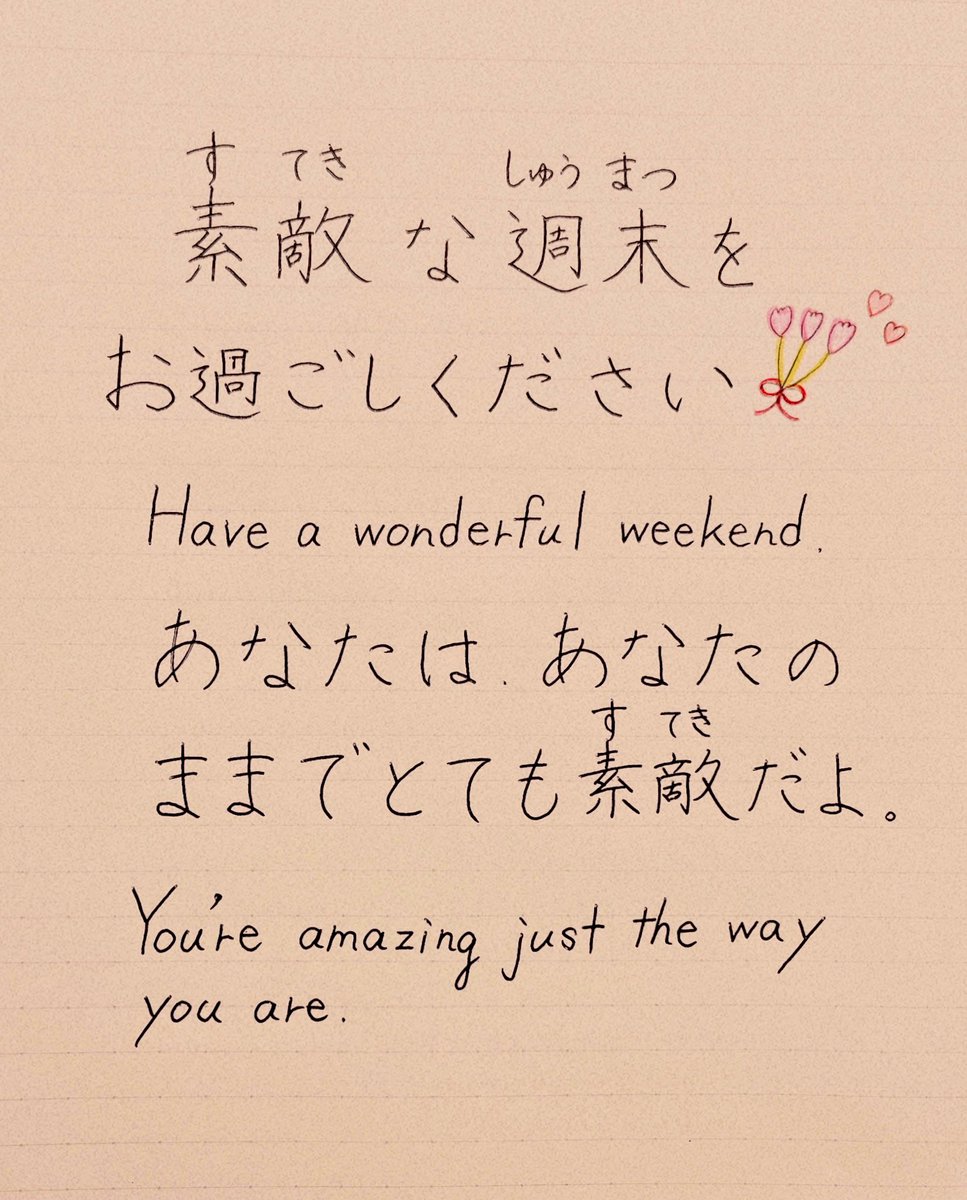 す てき しゅう まつ
素敵な週末を
お過ごしください
Have a wonderful weekend.
あなたは、あなたの
す てき
ままでとても素敵だよ。
You're amazing just the way
you are.